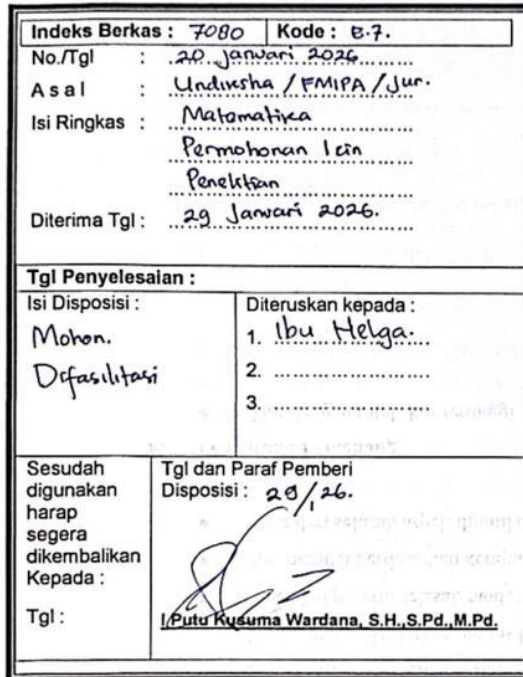 Indeks Berkas : 7080 Kode : B.7.
No./Tgl : 20 Januari 2026
Asal : Undiksha / FMIPA / Jur.
Isi Ringkas : Matematika
Permohonan Izin
Penelitian
Diterima Tgl : 29 Januari 2026.
Tgl Penyelesaian :
Isi Disposisi :
Mohon.
Difasilitasi
Diteruskan kepada :
1. Ibu Helga.
2.
3.
Sesudah
digunakan
harap
segera
dikembalikan
Kepada :
Tgl :
Tgl dan Paraf Pemberi
Disposisi : 29/1 26.
I Putu Kusuma Wardana, S.H.,S.Pd.,M.Pd.